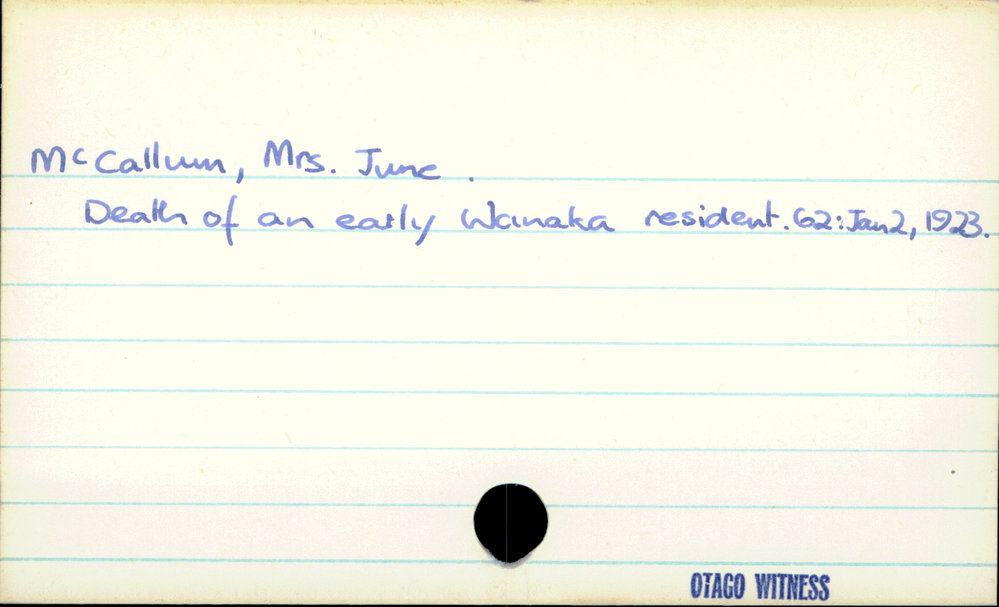 McCallum, Mrs. June.
Death of an early Wanaka resident. 62: Jan 2, 1923.
OTAGO WITNESS